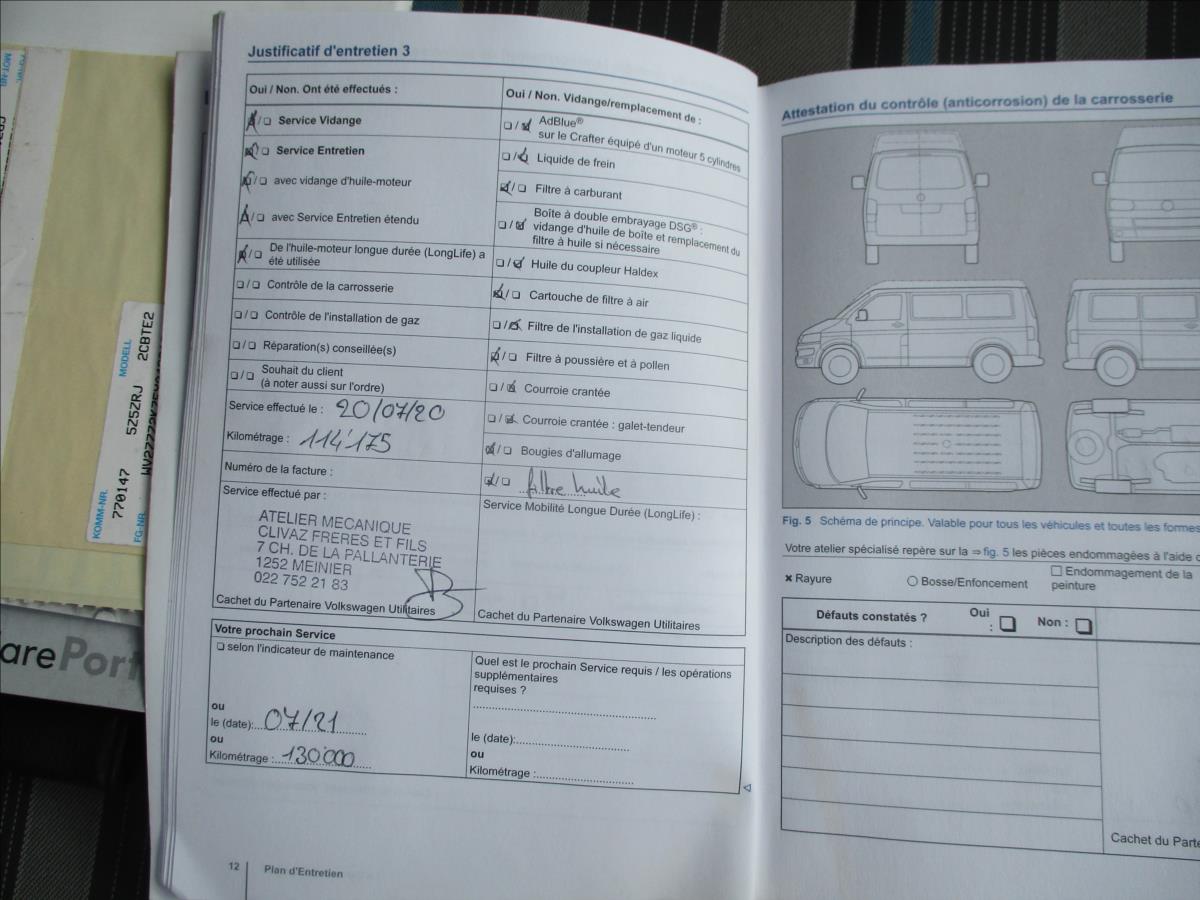 Justificatif d'entretien 3
Oui / Non. Ont été effectués :
Service Vidange
Service Entretien
avec vidange d'huile-moteur
avec Service Entretien étendu
De l'huile-moteur longue durée (LongLife) a
été utilisée
Contrôle de la carrosserie
Contrôle de l'installation de gaz
Réparation(s) conseillée(s)
Souhait du client
(à noter aussi sur l'ordre)
Service effectué le : 20/07/20
Kilométrage : 114'175
Numéro de la facture :
Service effectué par :
ATELIER MECANIQUE
CLIVAZ FRERES ET FILS
7 CH. DE LA PALLANTERIE
1252 MEINIER
022 752 21 83
Cachet du Partenaire Volkswagen Utilitaires
Oui / Non. Vidange/remplacement de :
AdBlue®
sur le Crafter équipé d'un moteur 5 cylindres
Liquide de frein
Filtre à carburant
Boîte à double embrayage DSG® :
vidange d'huile de boîte et remplacement du
filtre à huile si nécessaire
Huile du coupleur Haldex
Cartouche de filtre à air
Filtre de l'installation de gaz liquide
Filtre à poussière et à pollen
Courroie crantée
Courroie crantée : galet-tendeur
Bougies d'allumage
filtre huile
Service Mobilité Longue Durée (LongLife) :
Cachet du Partenaire Volkswagen Utilitaires
Votre prochain Service
selon l'indicateur de maintenance
ou
le (date): 07/21
ou
Kilométrage : 130'000
Quel est le prochain Service requis / les opérations
supplémentaires
requises ?
le (date):
ou
Kilométrage :
12 Plan d'Entretien
Attestation du contrôle (anticorrosion) de la carrosserie
Fig. 5 Schéma de principe. Valable pour tous les véhicules et toutes les formes
Votre atelier spécialisé repère sur la ⇒ fig. 5 les pièces endommagées à l'aide
Rayure
Bosse/Enfoncement
Endommagement de la
peinture
Défauts constatés ?
Oui
:
Non :
Description des défauts :
Cachet du Parte
KOMM-NR.
770147
FG-NR.
MODELL
5Z5ZRJ 2CBTE2
MOT-NR.
arePort